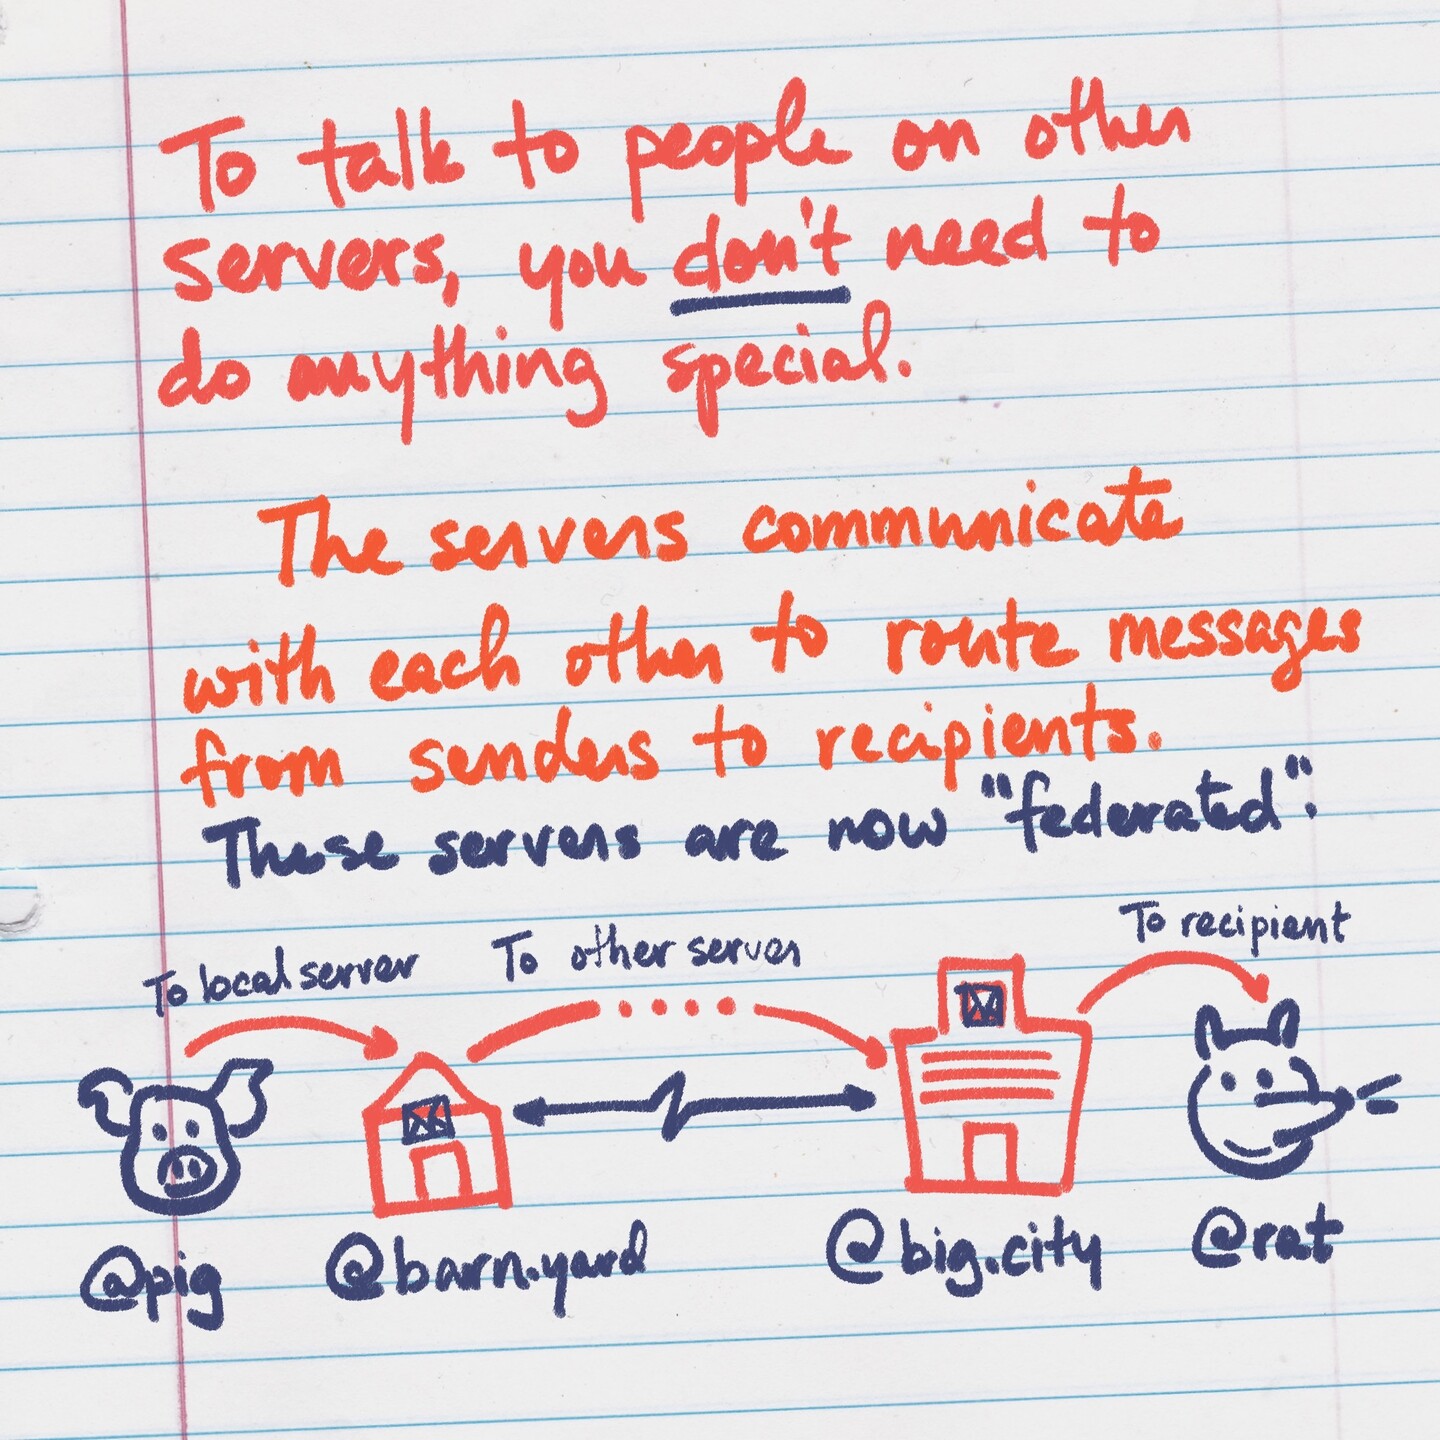 To talk to people on other
servers, you don't need to
do anything special.
The servers communicate
with each other to route messages
from senders to recipients.
These servers are now "federated".
To local server
To other server
To recipient
@pig
@barn.yard
@big.city
@rat